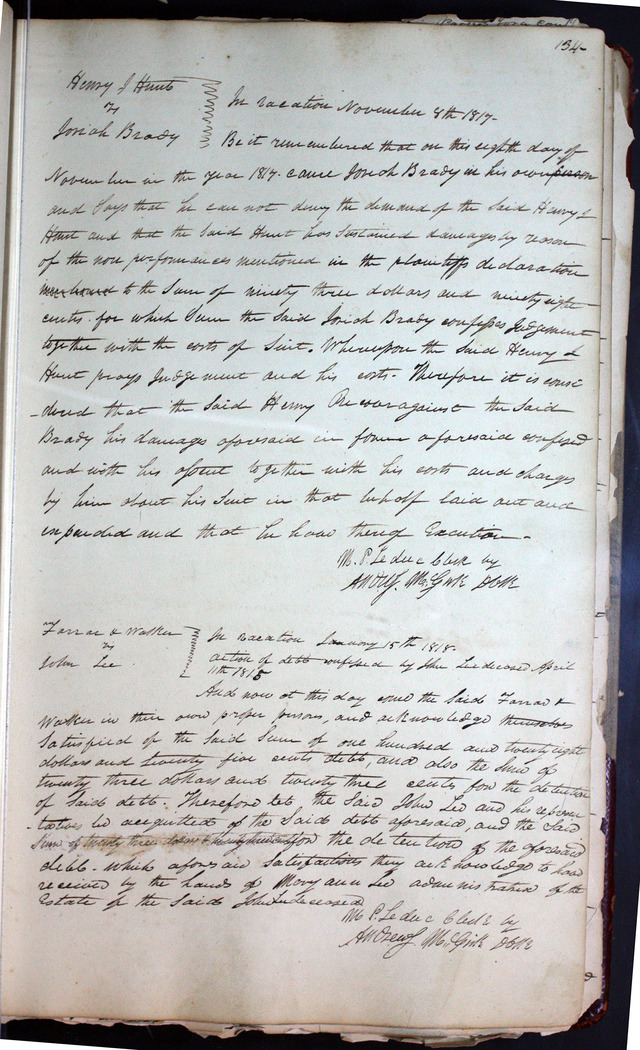 134
Henry J Hunt
vs
Josiah Brady
In vacation November 8th 1817-
Be it remembered that on this eighth day of
November in the year 1817. came Josiah Brady in his own person
and Says that he can not deny the demand of the Said Henry J
Hunt and that the Said Hunt has Sustained damages by reason
of the non performances mentioned in the plaintiffs declaration
mentioned to the Sum of ninety three dollars and ninety eight
cents. for which Sum the Said Josiah Brady confesses Judgement
together with the costs of Suit. Whereupon the Said Henry J
Hunt prays Judgement and his costs. Therefore it is consi
-dered that the Said Henry Recover against the Said
Brady his damages aforesaid in form aforesaid confessed
and with his assent together with his costs and charges
by him about his Suit in that behalf laid out and
expended and that he have thereof Execution.
M. P. Leduc Clerk by
Andw. McGirk DClk
Farrar & Walker
vs
John Lee
In vacation January 15th 1818.
action of debt confessed by John Lee deceased April
11th 1815
And now at this day come the Said Farrar &
Walker in their own proper persons, and acknowledge themselves
Satisfied of the Said Sum of one hundred and twenty eight
dollars and twenty five cents debt, and also the Sum of
twenty three dollars and twenty three cents for the detention
of Said debt. Therefore let the Said John Lee and his represen
-tatives be acquitted of the Said debt aforesaid, and the Said
Sum of twenty three dollars & twenty three cents for the detention of the aforesaid
debt. which aforesaid Satisfaction they acknowledge to have
received by the hands of Mary ann Lee administratrix of the
Estate of the Said John Lee deceased
M P. Leduc Clerk by
Andrew McGirk DClk